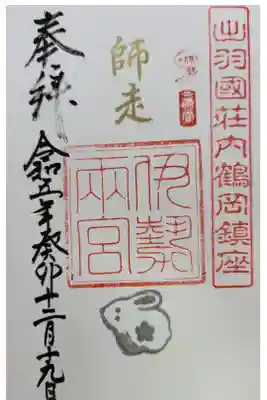 出羽國荘内鶴岡鎮座
師走
伊勢
兩宮
奉拝
令和五年癸卯十二月十九日